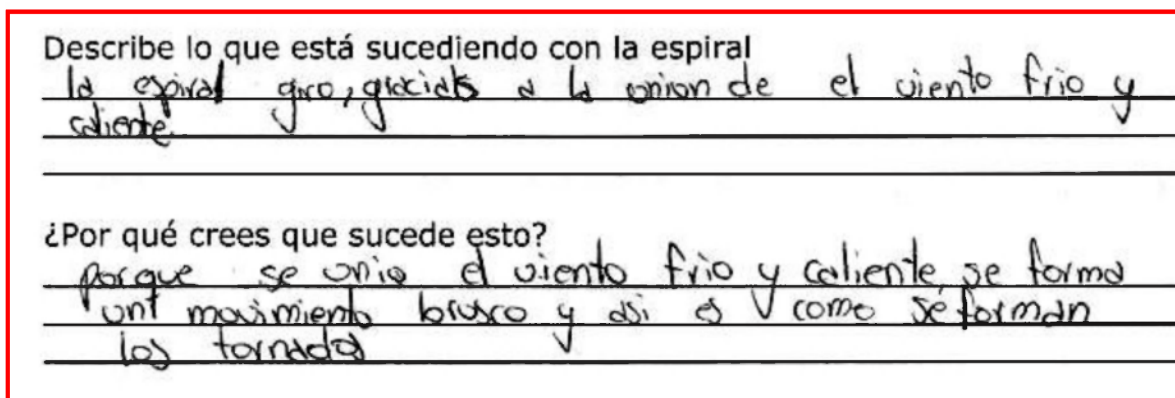 Describe lo que está sucediendo con la espiral
la espiral giro, gracias a la union de el viento frio y
caliente.
¿Por qué crees que sucede esto?
porque se unio el viento frio y caliente, se forma
un movimiento brusco y asi es como se forman
los tornados